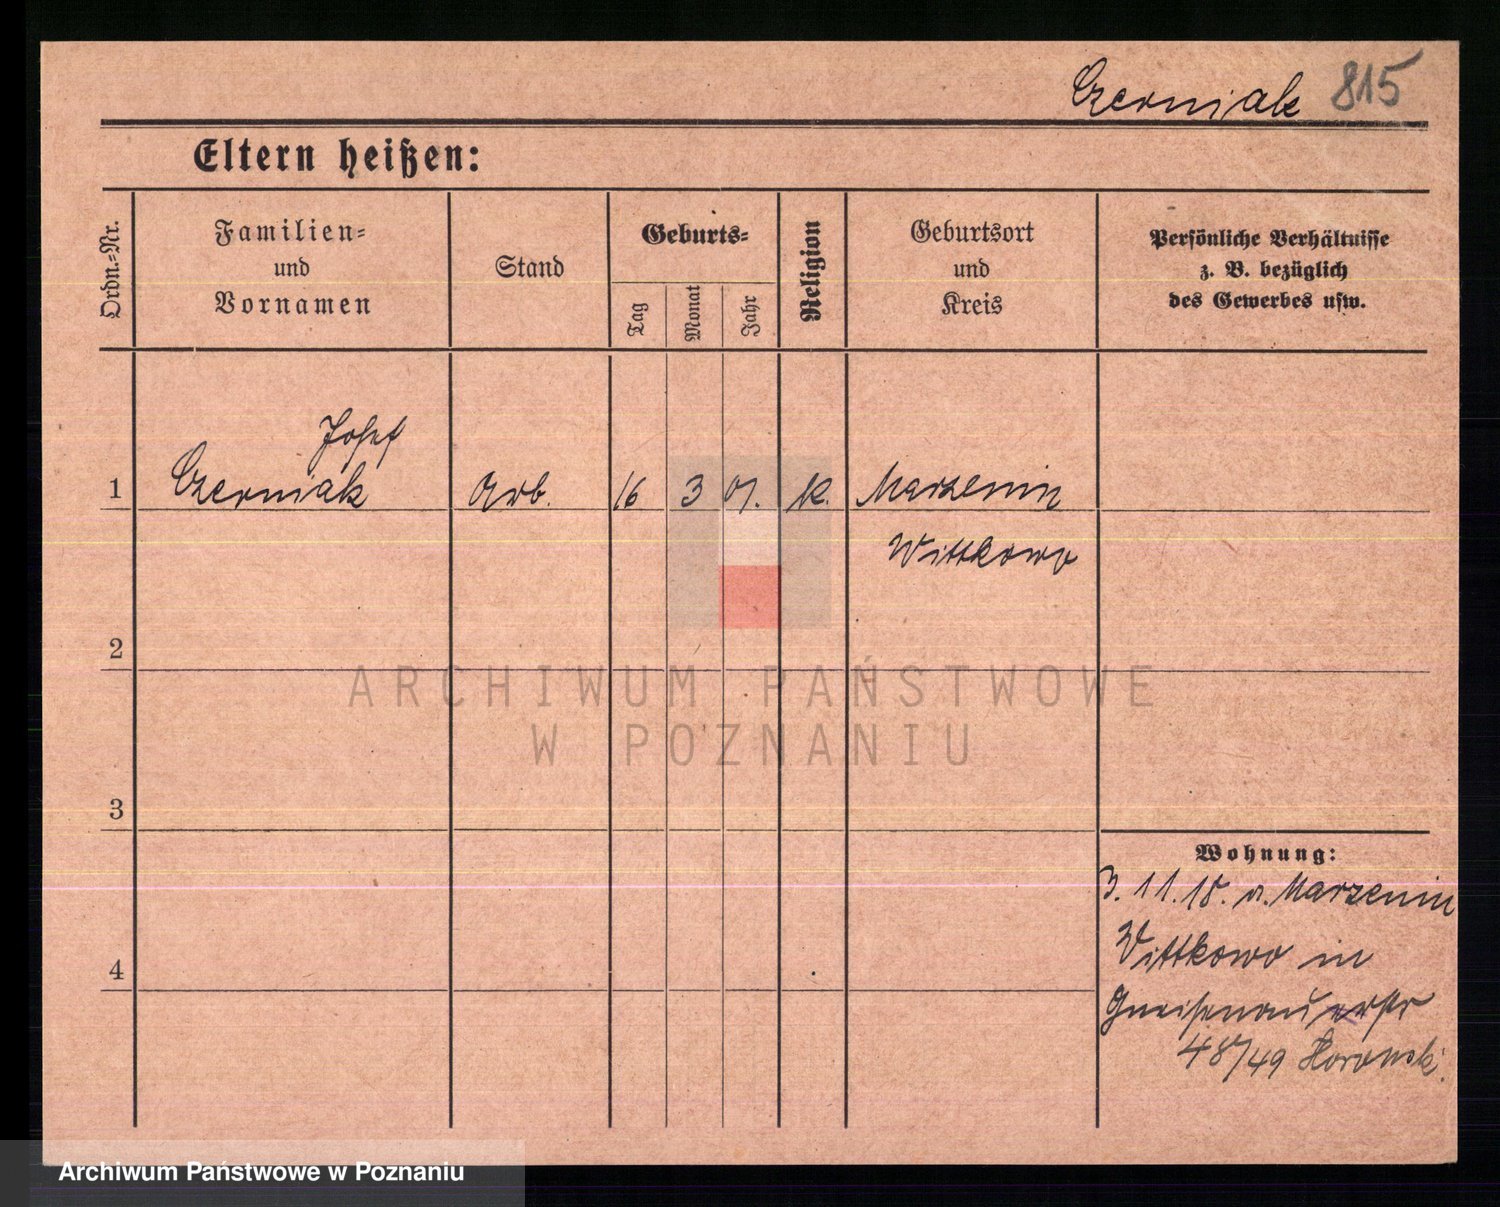 Czerniak 815
Eltern heißen:
Ordn.-Nr.
Familien-
und
Vornamen
Stand
Geburts-
Tag
Monat
Jahr
Religion
Geburtsort
und
Kreis
Persönliche Verhältnisse
z. B. bezüglich
des Gewerbes usw.
Josef
1 Czerniak Arb. 16 3 01. K. Marzenin
Wittkowo
2
3
4
Wohnung:
3. 11. 18. v. Marzenin
Wittkowo in
48/49
ARCHIWUM PAŃSTWOWE
W POZNANIU
Archiwum Państwowe w Poznaniu